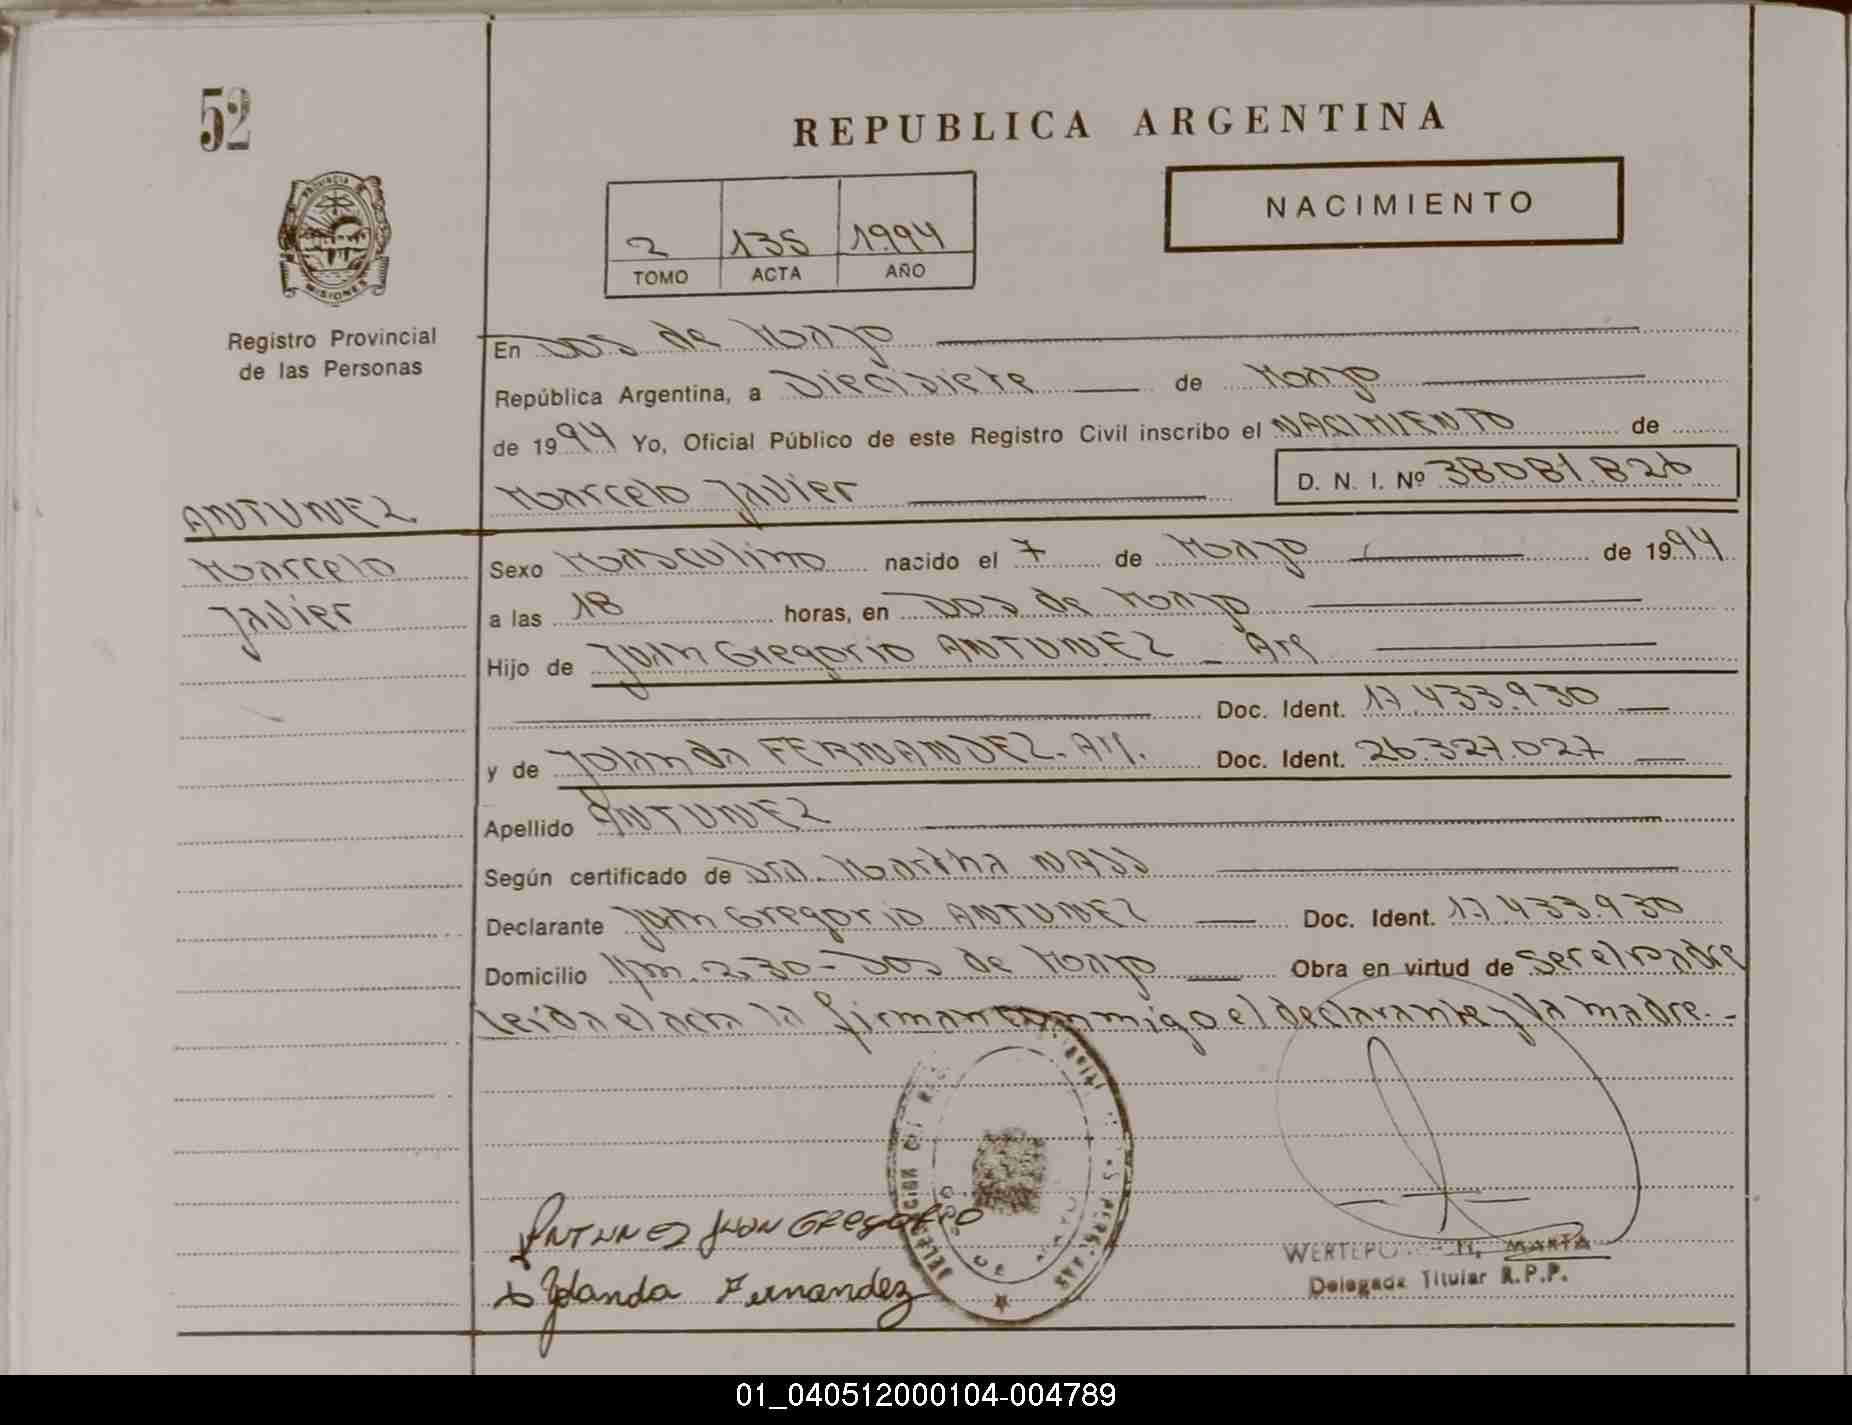 52
REPUBLICA ARGENTINA
NACIMIENTO
2 135 1994
TOMO ACTA AÑO
PROVINCIA DE
MISIONES
Registro Provincial
de las Personas
En Dos de Mayo
República Argentina, a Diecisiete de Mayo
de 1994 Yo, Oficial Público de este Registro Civil inscribo el NACIMIENTO de
Marcelo Javier D. N. I. Nº 38081.826
ANTUNEZ
Marcelo
Javier
Sexo Masculino nacido el 7 de Mayo de 1994
a las 18 horas, en Dos de Mayo
Hijo de Juan Gregorio ANTUNEZ - Arg
Doc. Ident. 17.433.930
y de Yolanda FERNANDEZ - Arg. Doc. Ident. 26.327.027
Apellido ANTUNEZ
Según certificado de Dra. Martha NASS
Declarante Juan Gregorio ANTUNEZ Doc. Ident. 17.433.930
Domicilio Km. 230 - Dos de Mayo Obra en virtud de ser el padre
leida el acta la firman conmigo el declarante y la madre. -
ANTUNEZ JUAN GREGORIO
Yolanda Fernandez
MARTA
Delegada Titular R.P.P.
01_040512000104-004789